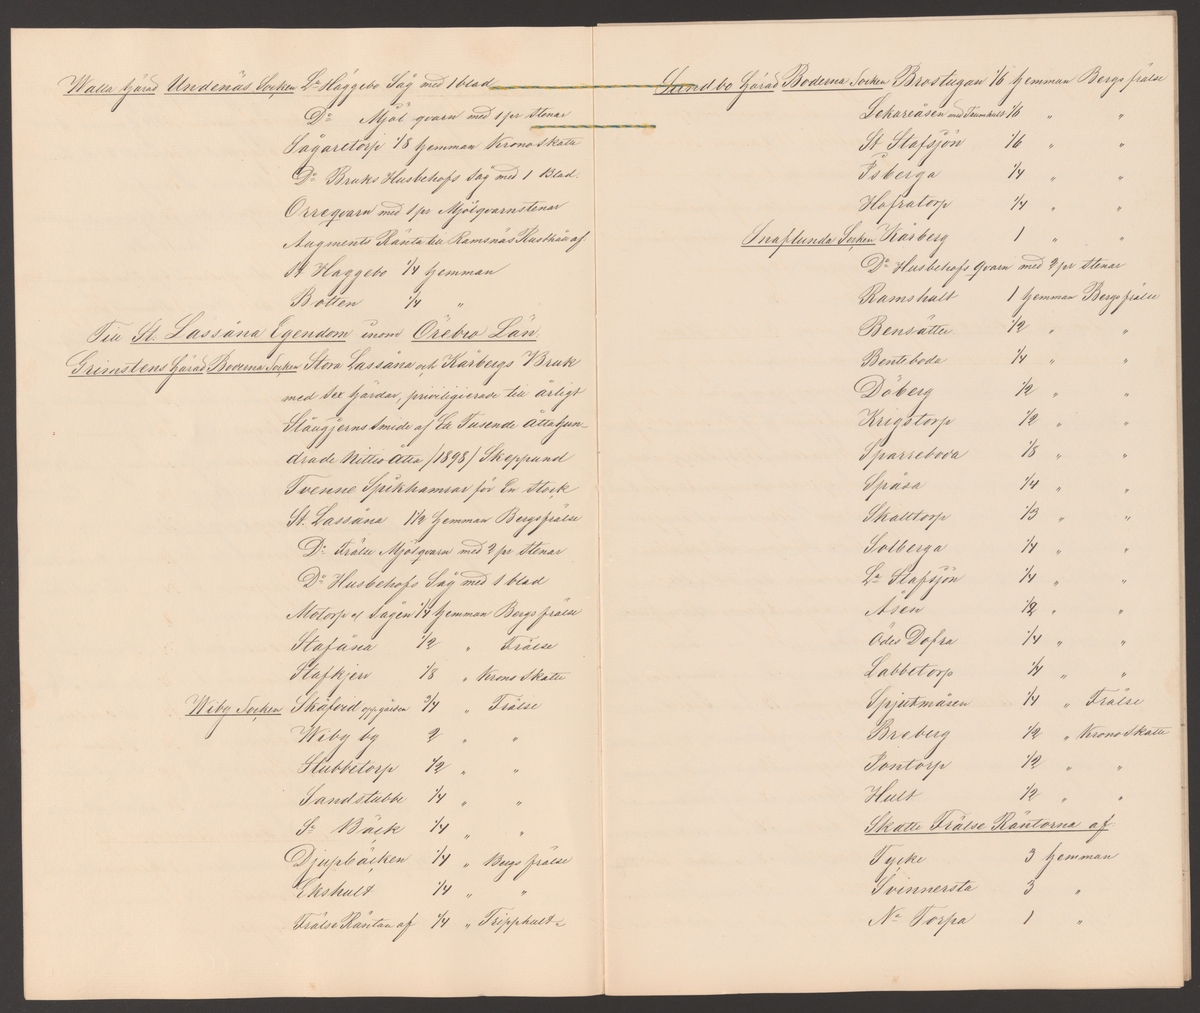 Walla Härad Undenäs Socken La Häggebo Såg med 1 blad
Do Mjöl qvarn med 1 pr Stenar
Sågaretorp 1/8 Hemman Krono Skatte
Do Bruks Husbehofs Såg med 1 Blad.
Orreqvarn med 1 pr Mjölqvarnstenar
Augments Ränta till Ramsnäs Rusthåll af
St Häggebo 1/4 Hemman
Botten 1/4 "
Till St. Lassåna Egendom inom Örebro Län
Grimstens Härad Boderna Socken Stora Lassåna och Kårbergs Bruk
med Sex Härdar, priviligierade till årligt
Stångjerns Smide af Ett Tusende Åttahun-
drade Nittio Åtta /1898/ Skeppund
Tvenne Spikhamrar för En Stock
St. Lassåna 1 1/2 Hemman Bergsfrälse
Do Frälse Mjölqvarn med 2 pr Stenar
Do Husbehofs Såg med 1 blad
Motorp el Sågen 1/4 Hemman Bergsfrälse
Stafåna 1/2 " Frälse
Stafkjerr 1/8 " Krono Skatte
Wiby Socken Skåfvid oppgården 3/4 " Frälse
Wiby by 2 " "
Hubbetorp 1/2 " "
Sandstubbe 1/4 " "
Sr Bäck 1/4 " "
Djupbäcken 1/4 " Bergsfrälse
Ekshult 1/4 " "
Frälse Räntan af 1/4 " Tripphult
Sundbo Härad Boderna Socken Brostugan 1/6 Hemman Bergsfrälse
Lekareåsen med Tramhult 1/6 " "
St Stafsjön 1/6 " "
Isberga 1/4 " "
Hofratorp 1/4 " "
Snaflunda Socken Kårberg 1 " "
Do Husbehofs qvarn med 2 pr Stenar
Ramshult 1 Hemman Bergsfrälse
Bensätter 1/2 " "
Benteboda 1/4 " "
Döberg 1/2 " "
Krigstorp 1/2 " "
Sparreboda 1/8 " "
Spåsa 1/4 " "
Skalltorp 1/3 " "
Solberga 1/4 " "
La Stafsjön 1/4 " "
Åsen 1/2 " "
Ödes Dofra 1/4 " "
Labbetorp 1/4 " "
Spjutmåsen 1/4 " Frälse
Broberg 1/2 " Krono Skatte
Pontorp 1/2 " "
Hult 1/2 " "
Skatte Frälse Räntorna af
Tycke 3 Hemman
Svinnersta 3 "
No Torpa 1 "